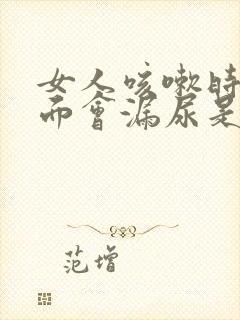 女人咳嗽时
而会漏尿是
范增